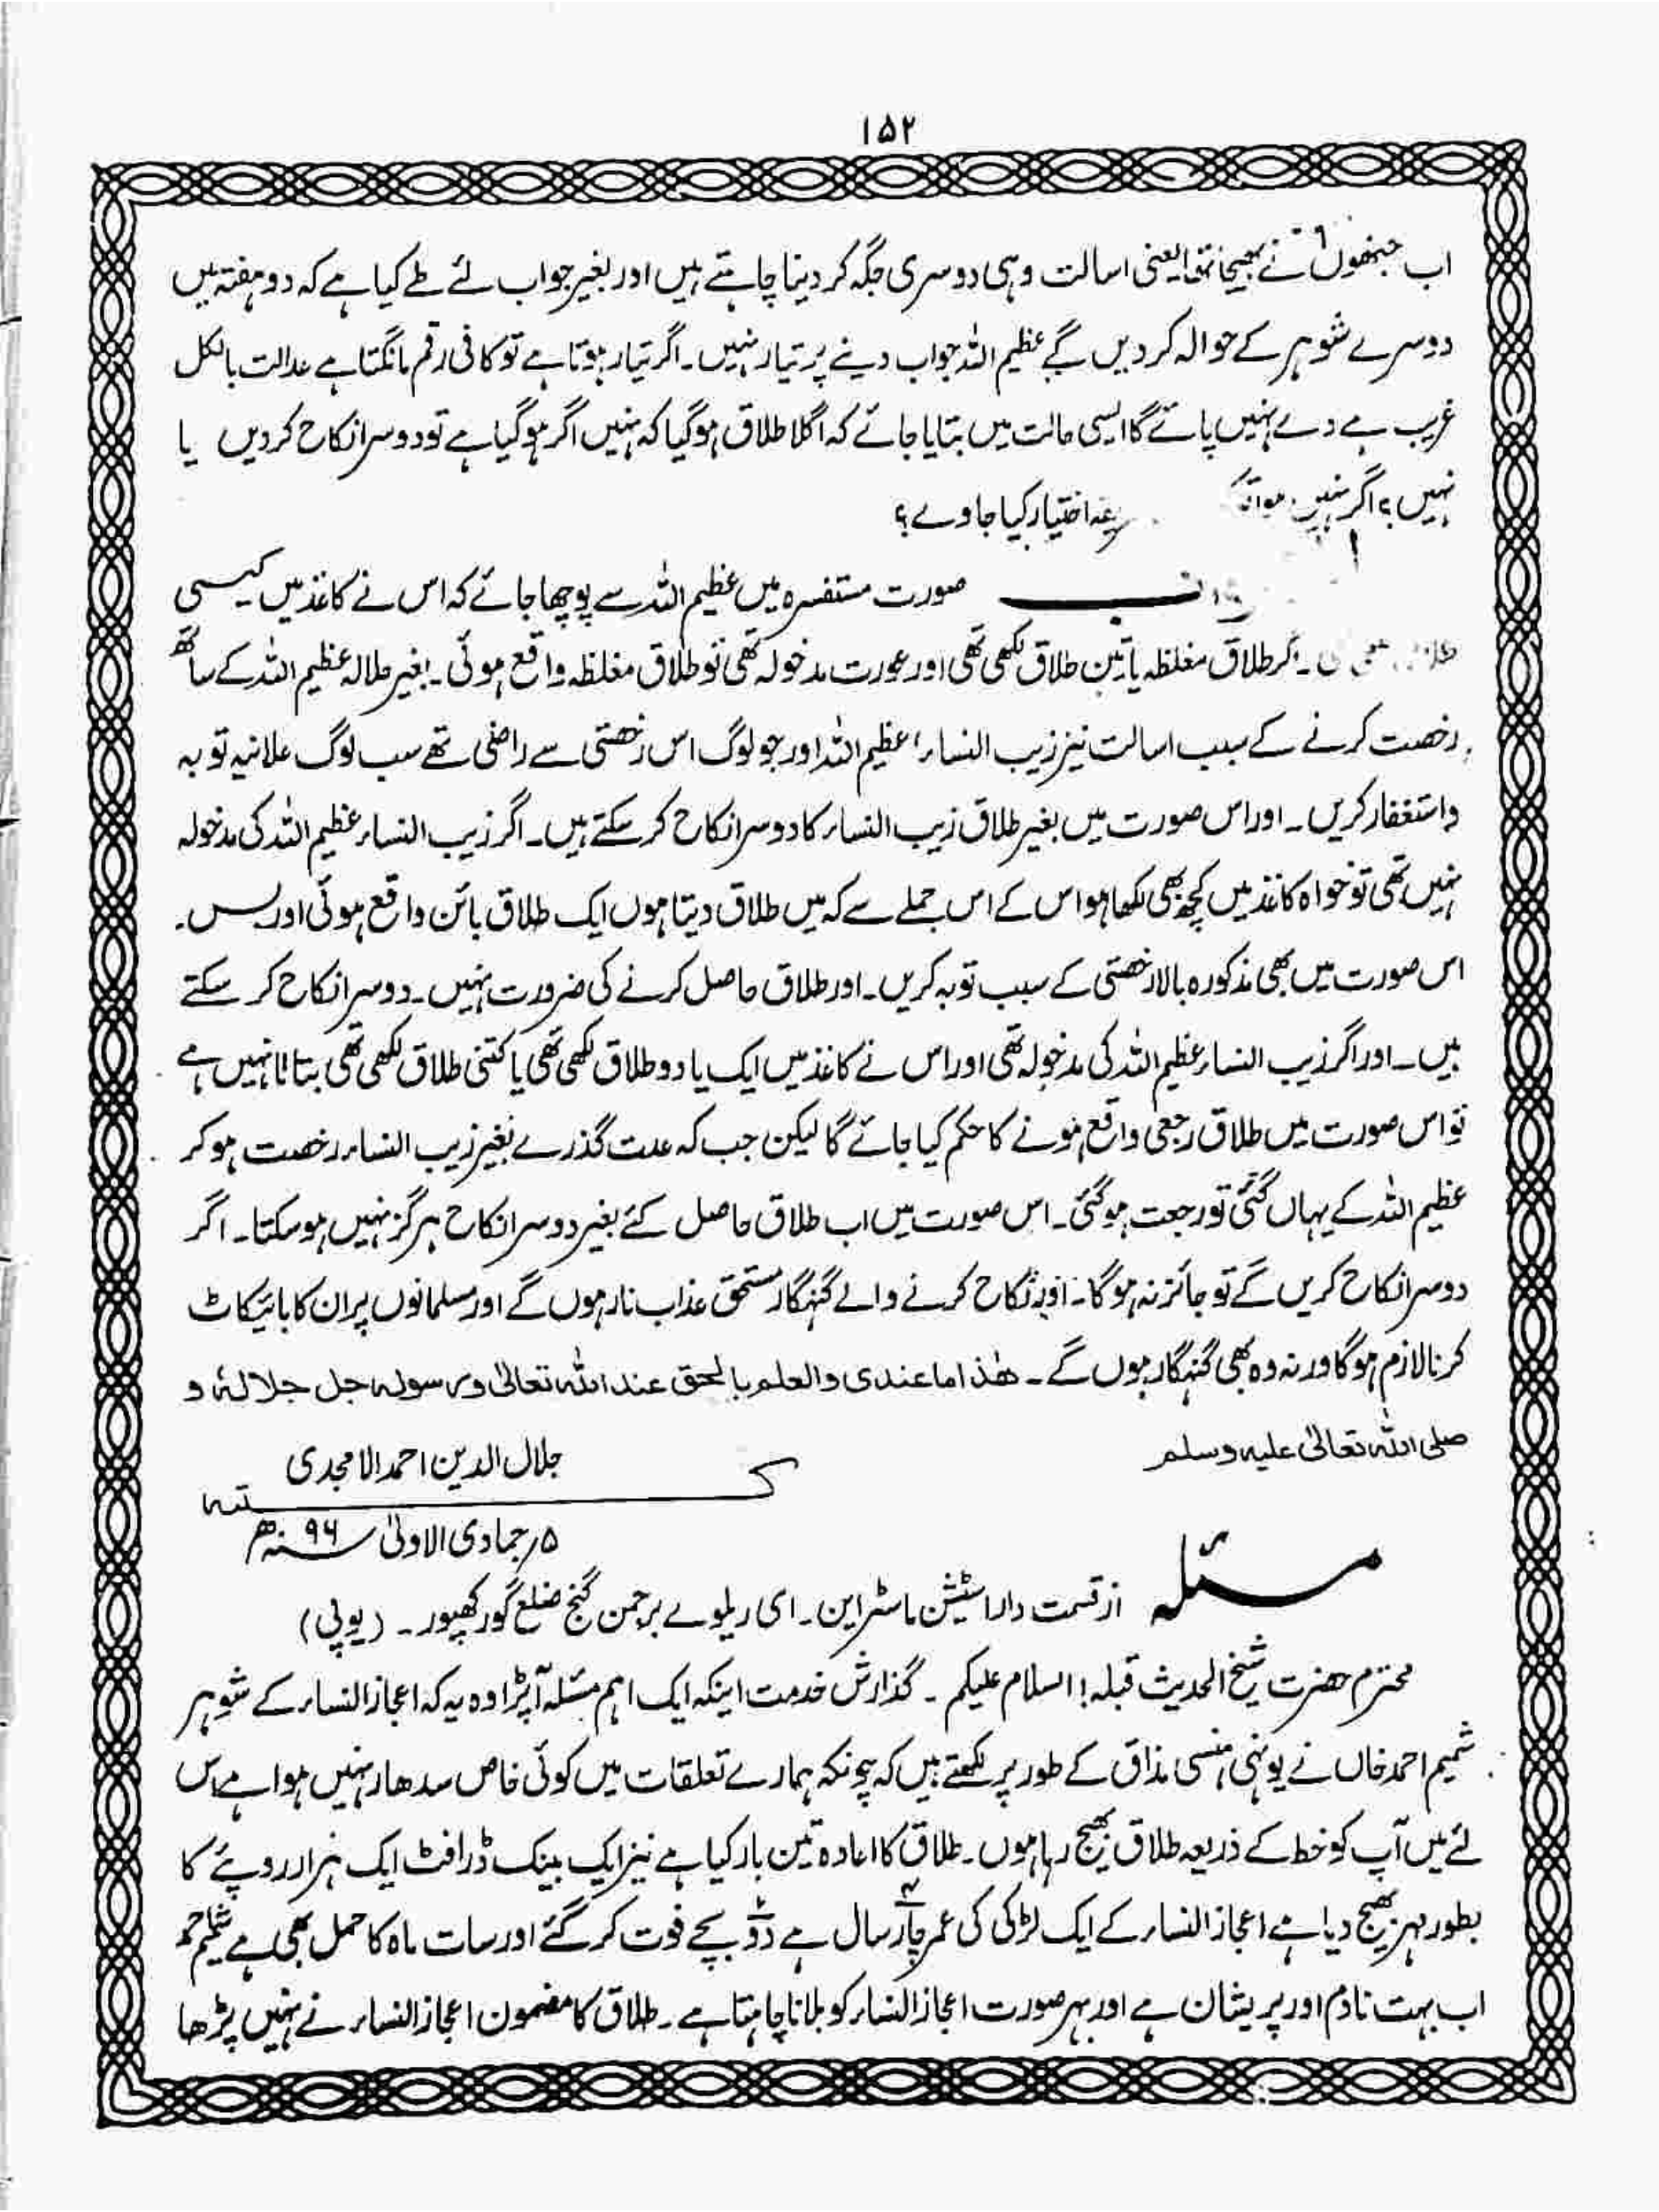 ۱۵۲
اب جنھوں نے بھیجا تھا یعنی اسالت وہی دوسری جگہ کر دینا چاہتے ہیں اور بغیر جواب لئے طے کیا ہے کہ دو ہفتہ میں
دوسرے شوہر کے حوالہ کر دیں گے عظیم اللہ جواب دینے پر تیار نہیں۔ اگر تیار ہوتا ہے تو کافی رقم مانگتا ہے عدالت بالکل
غریب ہے دے نہیں پائے گا ایسی حالت میں بتایا جائے کہ اگلا طلاق ہو گیا کہ نہیں اگر ہو گیا ہے تو دوسرا نکاح کر دیں یا
نہیں؟ اگر نہیں ہوا تو اختیار کیا جاوے؟
صورت مستفسرہ میں عظیم اللہ سے پوچھا جائے کہ اس نے کاغذ میں کیسی
طلاق لکھی تھی۔ اگر طلاق مغلظہ یا تین طلاق لکھی تھی اور عورت مدخولہ تھی تو طلاق مغلظہ واقع ہوئی۔ بغیر حلالہ عظیم اللہ کے ساتھ
رخصت کرنے کے سبب اسالت نیز زیب النساء، عظیم اللہ اور جو لوگ اس رخصتی سے راضی تھے سب لوگ علانیہ توبہ
واستغفار کریں۔ اور اس صورت میں بغیر طلاق زیب النساء کا دوسرا نکاح کر سکتے ہیں۔ اگر زیب النساء عظیم اللہ کی مدخولہ
نہیں تھی تو خواہ کاغذ میں کچھ بھی لکھا ہو اس کے اس جملے سے کہ میں طلاق دیتا ہوں ایک طلاق بائن واقع ہوئی اور بس۔
اس صورت میں بھی مذکورہ بالا رخصتی کے سبب توبہ کریں۔ اور طلاق حاصل کرنے کی ضرورت نہیں۔ دوسرا نکاح کر سکتے
ہیں۔ اور اگر زیب النساء عظیم اللہ کی مدخولہ تھی اور اس نے کاغذ میں ایک یا دو طلاق لکھی تھی یا کتنی طلاق لکھی تھی بتاتا نہیں ہے
تو اس صورت میں طلاق رجعی واقع ہونے کا حکم کیا جائے گا لیکن جب کہ عدت گذرے بغیر زیب النساء رخصت ہو کر
عظیم اللہ کے یہاں گئی تو رجعت ہو گئی۔ اس صورت میں اب طلاق حاصل کئے بغیر دوسرا نکاح ہرگز نہیں ہو سکتا۔ اگر
دوسرا نکاح کریں گے تو جائز نہ ہوگا۔ اور نکاح کرنے والے گنہگار مستحق عذاب نار ہوں گے اور مسلمانوں پر ان کا بائیکاٹ
کرنا لازم ہوگا ورنہ وہ بھی گنہگار ہوں گے۔ ھٰذا ما عندی والعلم بالحق عند اللہ تعالیٰ ورسولہ جل جلالہٗ و
صلی اللہ تعالیٰ علیہ وسلم
جلال الدین احمد الامجدی
کتبہ
۵؍ جمادی الاولیٰ سنہ ۹۶ھ
مسئلہ از قسمت دار اسٹیشن ماسٹر این۔ ای ریلوے برجمن گنج ضلع گورکھپور۔ (یوپی)
محترم حضرت شیخ الحدیث قبلہ! السلام علیکم۔ گذارش خدمت اینکہ ایک اہم مسئلہ آپڑا وہ یہ کہ اعجاز النساء کے شوہر
شمیم احمد خاں نے یونہی ہنسی مذاق کے طور پر لکھتے ہیں کہ چونکہ ہمارے تعلقات میں کوئی خاص سدھار نہیں ہوا ہے اس
لئے میں آپ کو خط کے ذریعہ طلاق بھیج رہا ہوں۔ طلاق کا اعادہ تین بار کیا ہے نیز ایک بینک ڈرافٹ ایک ہزار روپئے کا
بطور مہر بھیج دیا ہے اعجاز النساء کے ایک لڑکی کی عمر چار سال ہے دو بچے فوت کر گئے اور سات ماہ کا حمل بھی ہے شمیم احمد
اب بہت نادم اور پریشان ہے اور بہر صورت اعجاز النساء کو بلانا چاہتا ہے۔ طلاق کا مضمون اعجاز النساء نے نہیں پڑھا